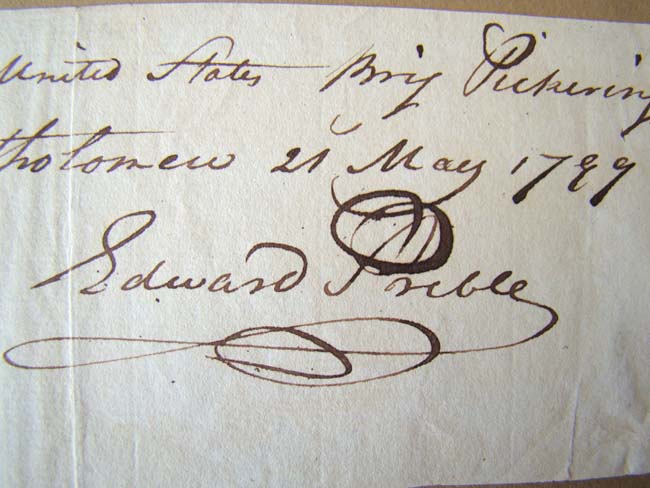 United States Brig Pickering
tholomew 21 May 1799
Edward Preble